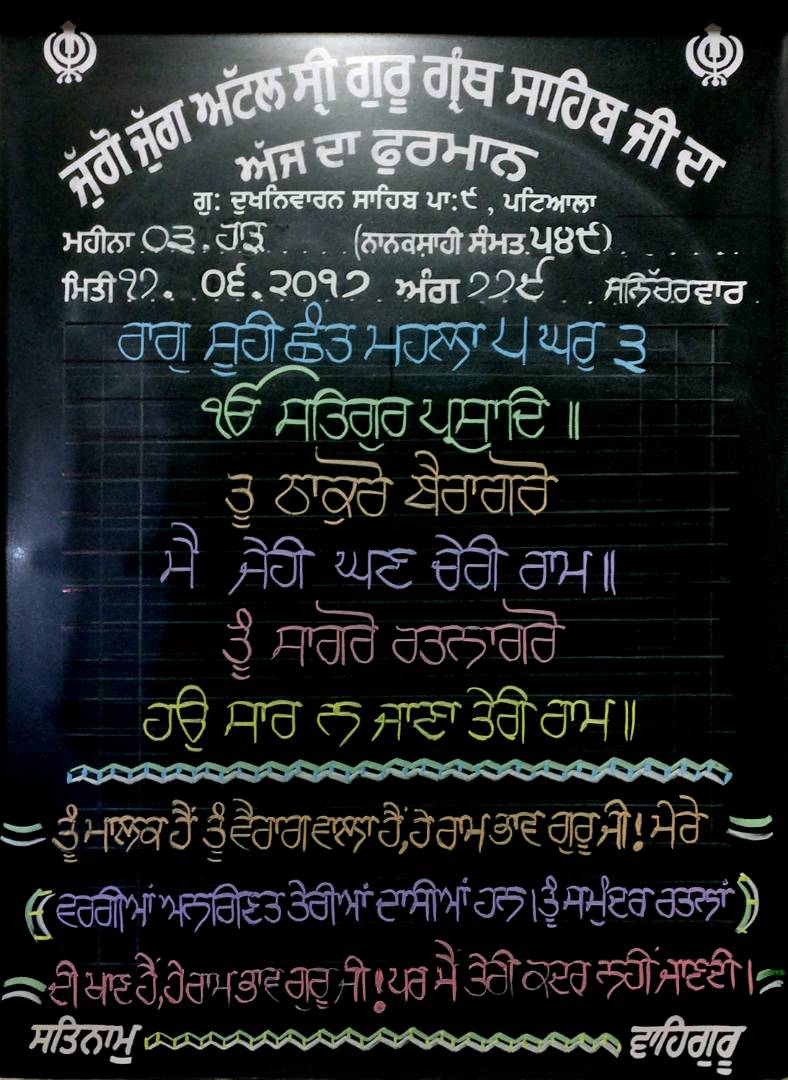 ਜੁੱਗੋ ਜੁੱਗ ਅਟੱਲ ਸ੍ਰੀ ਗੁਰੂ ਗ੍ਰੰਥ ਸਾਹਿਬ ਜੀ ਦਾ
ਅੱਜ ਦਾ ਫੁਰਮਾਨ
ਗੁ: ਦੁਖਨਿਵਾਰਨ ਸਾਹਿਬ ਪਾ:੯ , ਪਟਿਆਲਾ
ਮਹੀਨਾ ੦੩. ਹਾੜ (ਨਾਨਕਸ਼ਾਹੀ ਸੰਮਤ ੫੪੯)
ਮਿਤੀ ੧੭. ੦੬.੨੦੧੭ ਅੰਗ ੭੭੯ ਸ਼ਨਿੱਚਰਵਾਰ
ਰਾਗੁ ਸੂਹੀ ਛੰਤ ਮਹਲਾ ੫ ਘਰੁ ੩
ੴ ਸਤਿਗੁਰ ਪ੍ਰਸਾਦਿ ॥
ਤੂ ਠਾਕੁਰੋ ਬੈਰਾਗਰੋ
ਮੈ ਜੇਹੀ ਘਣ ਚੇਰੀ ਰਾਮ॥
ਤੂੰ ਸਾਗਰੋ ਰਤਨਾਗਰੋ
ਹਉ ਸਾਰ ਨ ਜਾਣਾ ਤੇਰੀ ਰਾਮ॥
ਤੂੰ ਮਾਲਕ ਹੈਂ ਤੂੰ ਵੈਰਾਗ ਵਾਲਾ ਹੈਂ, ਹੇ ਰਾਮ ਭਾਵ ਗੁਰੂ ਜੀ! ਮੇਰੇ
ਵਰਗੀਆਂ ਅਨਗਿਣਤ ਤੇਰੀਆਂ ਦਾਸੀਆਂ ਹਨ। ਤੂੰ ਸਮੁੰਦਰ ਰਤਨਾਂ
ਦੀ ਖਾਣ ਹੈਂ, ਹੇ ਰਾਮ ਭਾਵ ਗੁਰੂ ਜੀ! ਪਰ ਮੈਂ ਤੇਰੀ ਕਦਰ ਨਹੀਂ ਜਾਣਦੀ।
ਸਤਿਨਾਮੁ ਵਾਹਿਗੁਰੂ